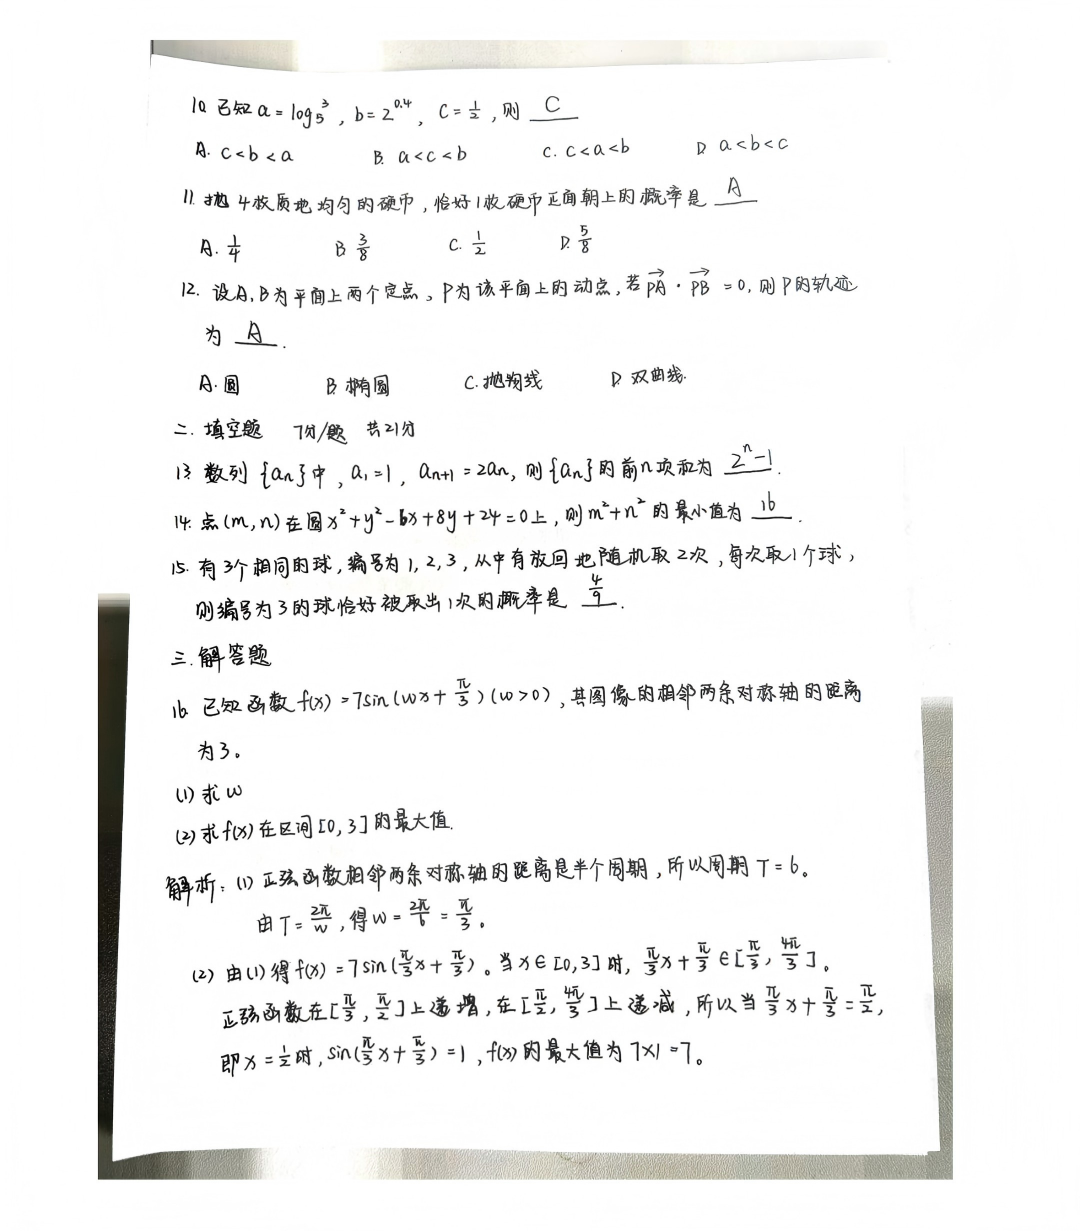 10. 已知 a = log₅³ , b = 2^0.4 , C = 1/2 , 则 C
A. c<b<a B. a<c<b C. c<a<b D a<b<c
11. 抛 4 枚质地均匀的硬币 , 恰好 1 枚硬币正面朝上的概率是 A
A. 1/4 B 3/8 C. 1/2 D. 5/8
12. 设A, B为平面上两个定点 、P为该平面上的动点, 若 PA→ · PB→ = 0, 则 P的轨迹
为 A .
A. 圆 B. 椭圆 C. 抛物线 D 双曲线.
二. 填空题 7分/题 共21分
13. 数列 {an}中 , a₁ = 1 , an+1 = 2an, 则 {an}的前n项和为 2ⁿ-1 .
14. 点 (m, n) 在圆 x²+y²-6x+8y+24=0上 , 则 m²+n² 的最小值为 16 .
15. 有3个相同的球, 编号为 1, 2, 3 , 从中有放回地随机取 2次 , 每次取1个球 ,
则编号为3的球恰好被取出1次的概率是 4/9 .
三. 解答题
16. 已知函数 f(x) = 7sin(wx + π/3) (w>0) , 其图像的相邻两条对称轴的距离
为3。
(1) 求 w
(2) 求 f(x) 在区间 [0, 3] 的最大值.
解析: (1) 正弦函数相邻两条对称轴的距离是半个周期 , 所以周期 T = 6。
由 T = 2π/w , 得 w = 2π/6 = π/3 。
(2) 由(1)得 f(x) = 7sin(π/3x + π/3) 。当 x∈[0,3]时, π/3x + π/3 ∈ [π/3, 4π/3] 。
正弦函数在 [π/3, π/2] 上递增 , 在 [π/2, 4π/3] 上递减 , 所以当 π/3x + π/3 = π/2,
即 x = 1/2 时, sin(π/3x + π/3) = 1 , f(x) 的最大值为 7×1 = 7。